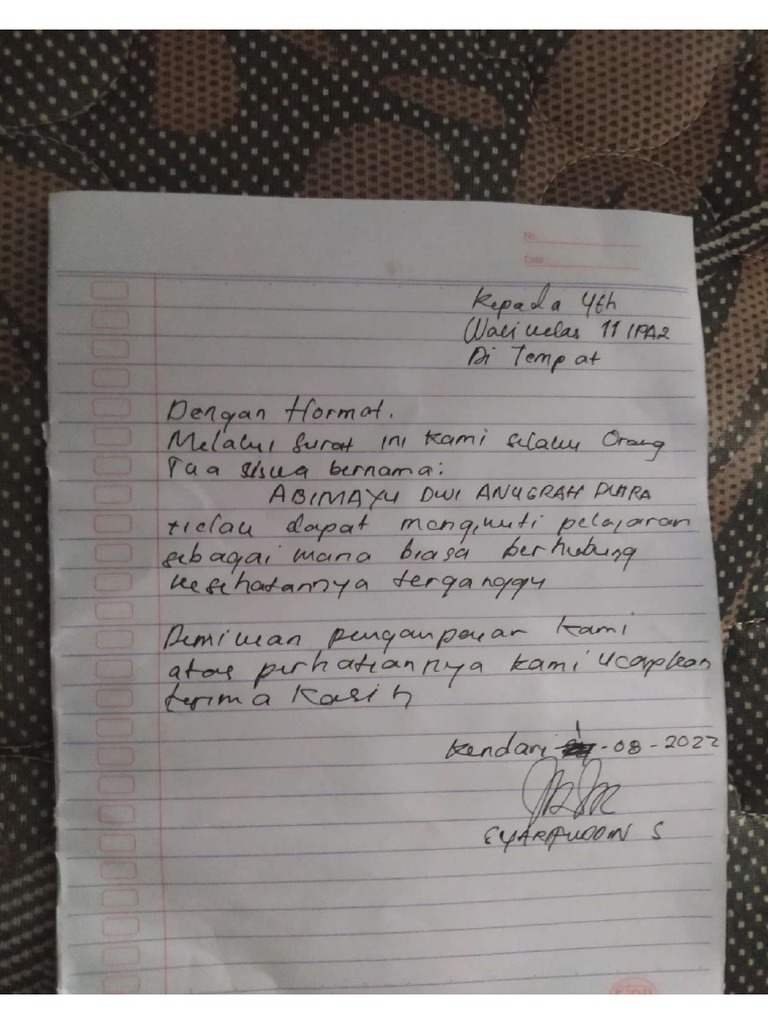 No.
Date
Kepada Yth
Wali kelas 11 IPA2
Di Tempat
Dengan Hormat.
Melalui surat ini kami selaku Orang
Tua siswa bernama:
ABIMAYU DWI ANUGRAH PUTRA
tidak dapat mengikuti pelajaran
sebagai mana biasa berhubung
kesehatannya terganggu
Demikian penyampaian kami
atas perhatiannya kami ucapkan
terima kasih
Kendari -08-2022
SYARIFUDDIN S